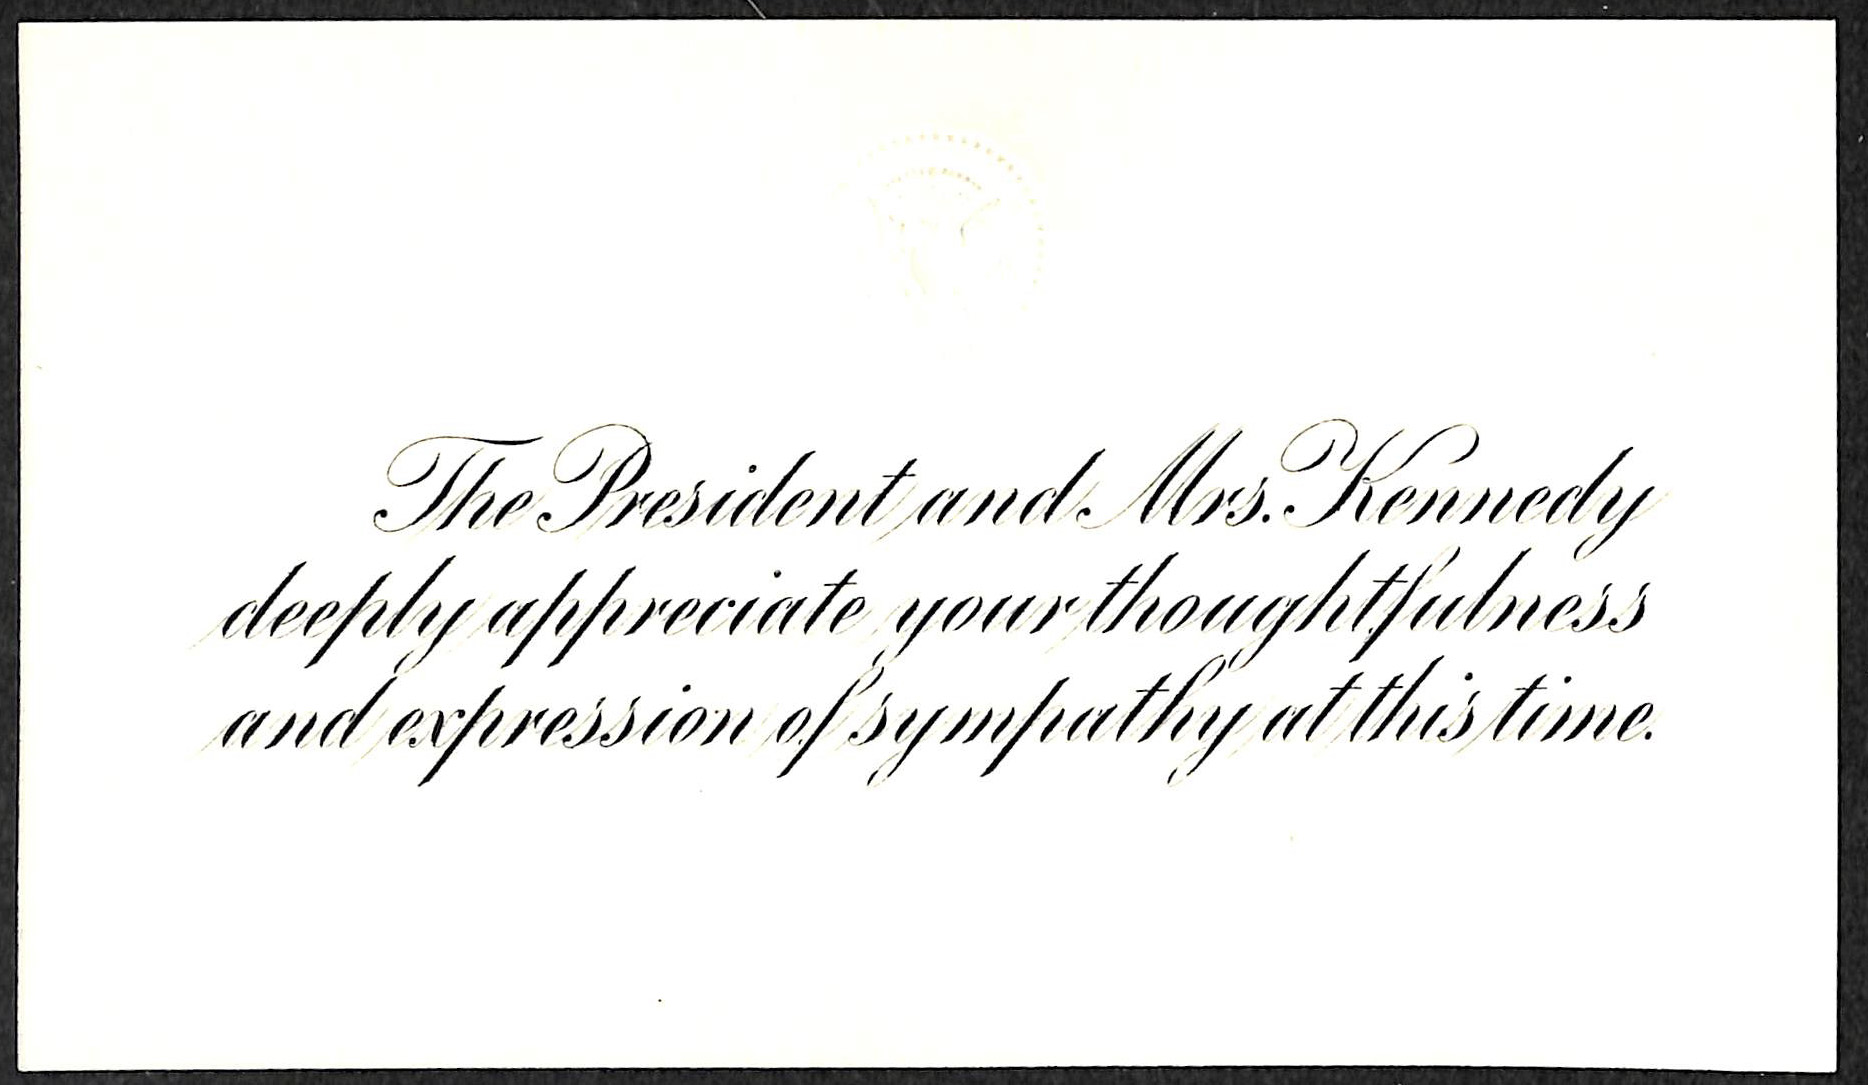 The President and Mrs. Kennedy
deeply appreciate your thoughtfulness
and expression of sympathy at this time.